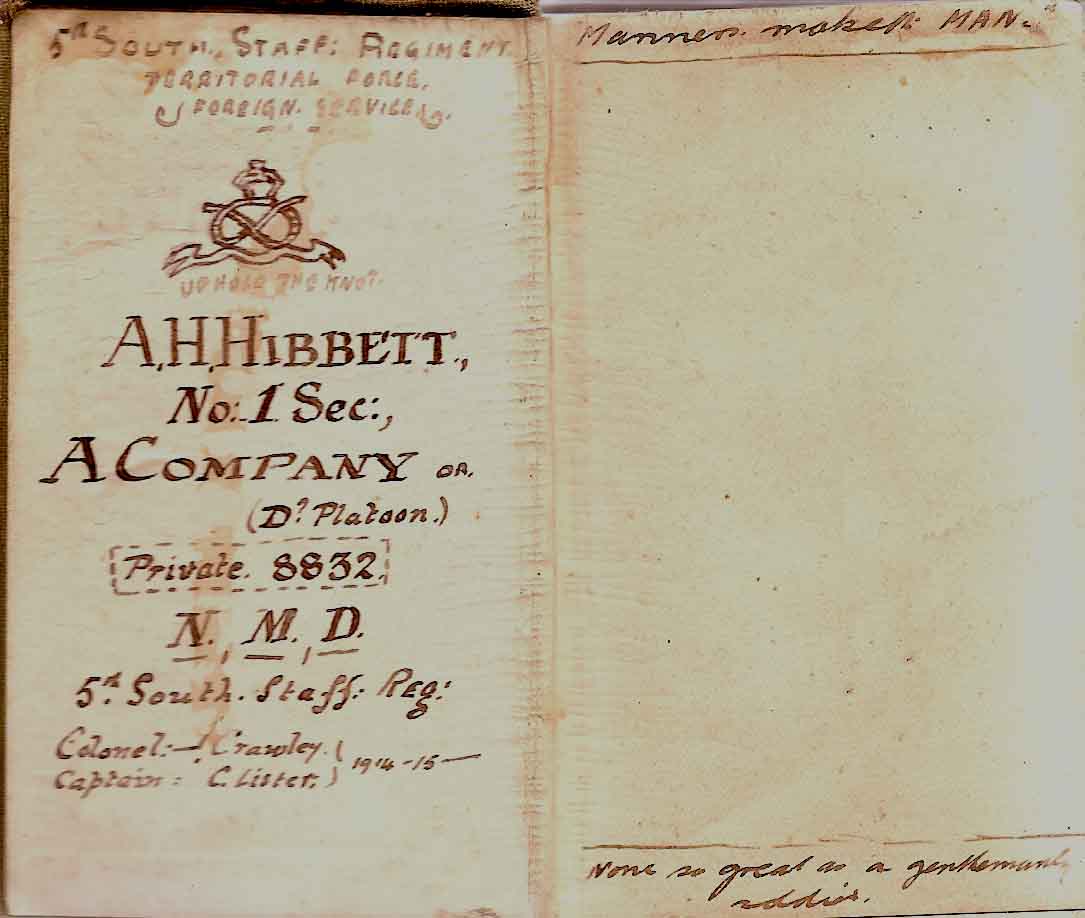 5th SOUTH. STAFF: REGIMENT
TERRITORIAL FORCE.
FOREIGN. SERVICE.
UPHOLD THE KNOT.
A.H.HIBBETT.,
No:.1 Sec:,
A COMPANY OR.
(D? Platoon.)
Private. 8832.
N., M., D.
5th South. Staff: Reg:
Colonel:— Crawley. (
Captain: C. Lister. ) 1914-15—
Manners. maketh MAN-
None so great as a gentlemanly
soldier.